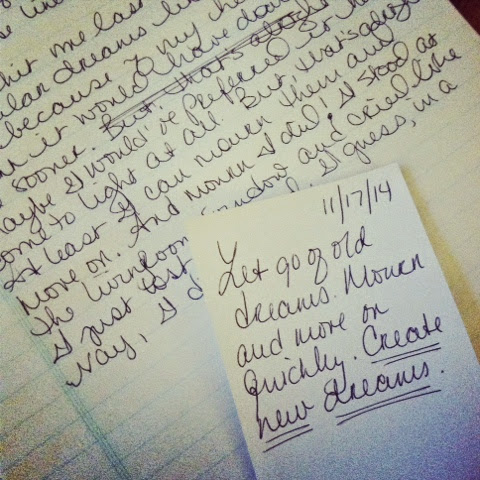 hit me last
ular dreams
because my
it would have
sooner. But, that's
maybe I would've preferred it
come to light at all. But, that's
At least I can mourn them and
move on. And mourn I did! I stood at
the livingroom window and cried like
I just lost I guess, in a
way, I
11/17/14
Let go of old
dreams. Mourn
and move on
quickly. Create
new dreams.